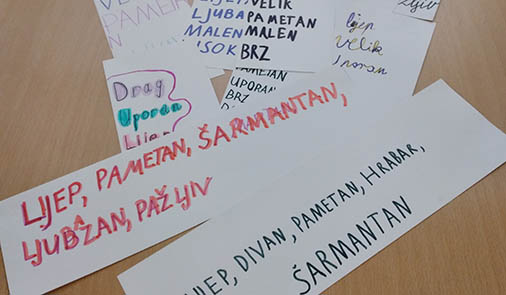 PAMETAN
LIJEP, VELIK
LJUBA PAMETAN
MALEN MALEN
BRZ
PAMETAN
UPORAN
BRZ
lijep
Velik
Uporan
Drag
Uporan
Lijep
LIJEP, PAMETAN, ŠARMANTAN,
LJUBAZAN, PAŽLJIV
LIJEP, DIVAN, PAMETAN, HRABAR,
ŠARMANTAN